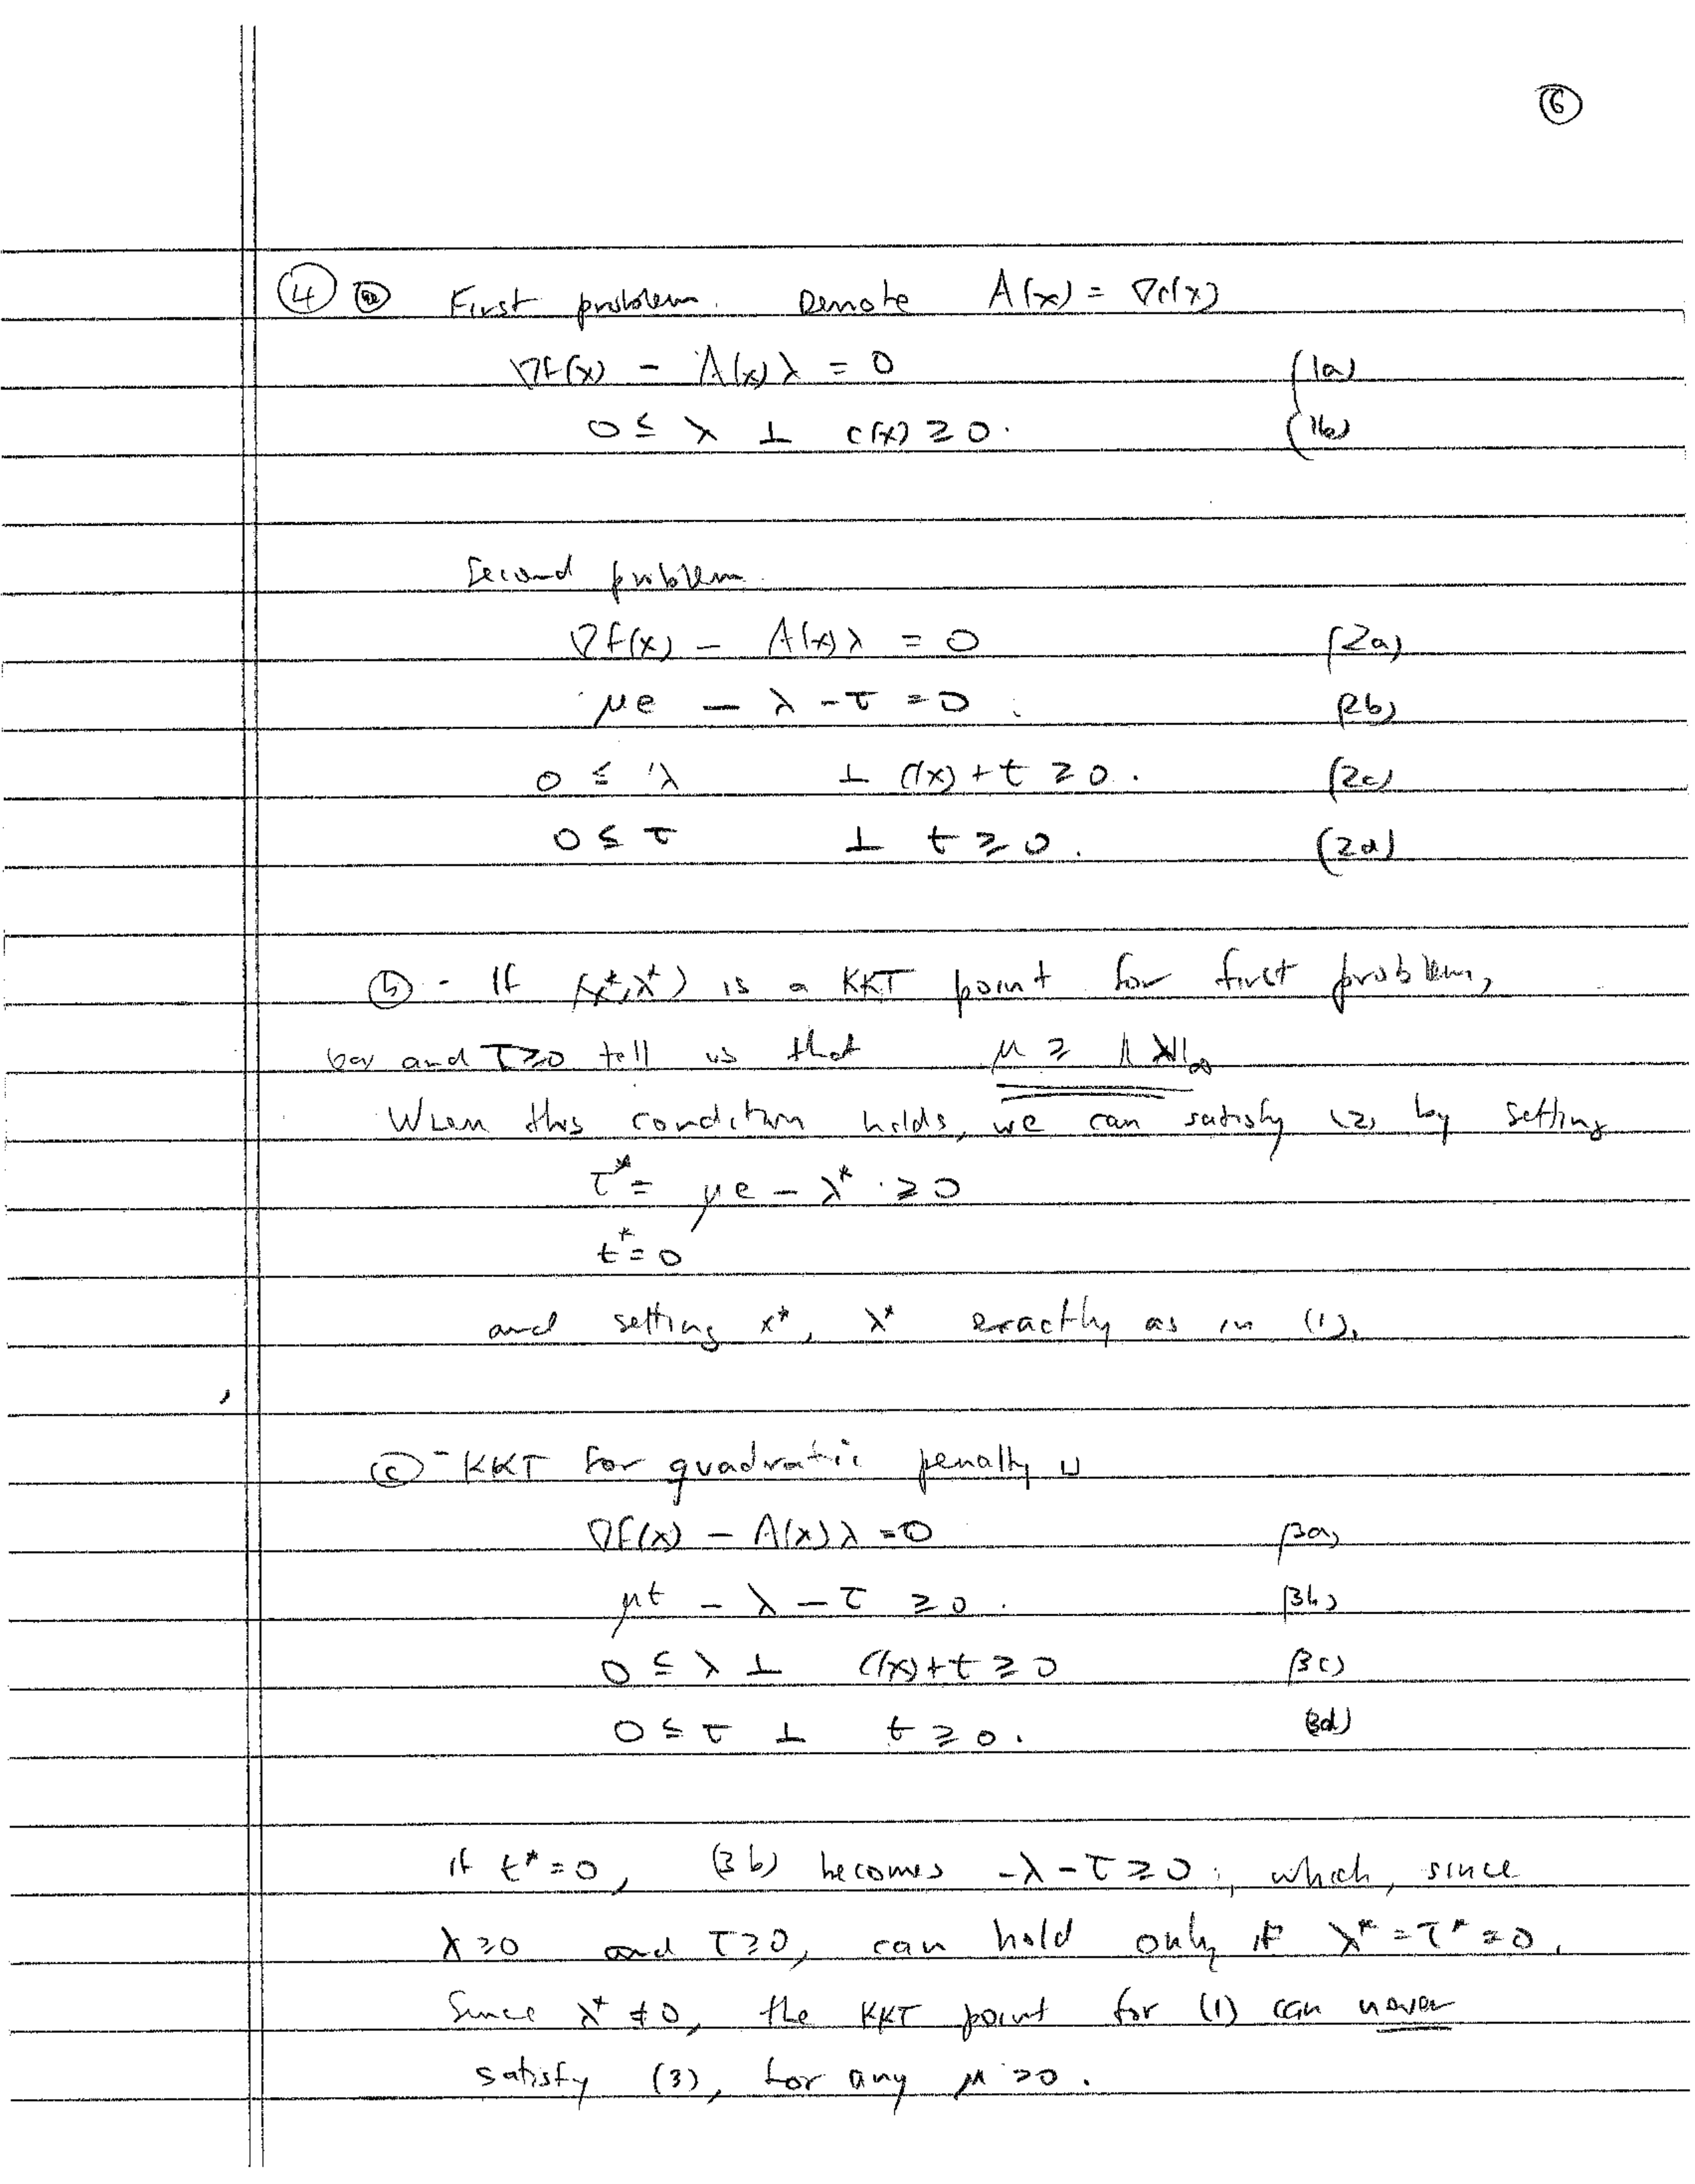 ⑥
④ ⓐ First problem. Denote A(x) = ∇c(x)
∇f(x) - A(x)λ = 0 (1a)
0 ≤ λ ⊥ c(x) ≥ 0. (1b)
Second problem.
∇f(x) - A(x)λ = 0 (2a)
μe - λ - τ = 0. (2b)
0 ≤ λ ⊥ c(x) + t ≥ 0. (2c)
0 ≤ τ ⊥ t ≥ 0. (2d)
ⓑ - If (x*,λ*) is a KKT point for first problem,
and τ≥0 tell us that μ ≥ ‖λ‖∞
When this condition holds, we can satisfy (2) by setting
τ* = μe - λ* ≥ 0
t* = 0
and setting x*, λ* exactly as in (1).
ⓒ - KKT for quadratic penalty is
∇f(x) - A(x)λ = 0 (3a)
μt - λ - τ ≥ 0. (3b)
0 ≤ λ ⊥ c(x)+t ≥ 0 (3c)
0 ≤ τ ⊥ t ≥ 0. (3d)
if t* = 0, (3b) becomes -λ-τ ≥ 0, which, since
λ ≥ 0 and τ ≥ 0, can hold only if λ* = τ* = 0.
Since λ* ≠ 0, the KKT point for (1) can never
satisfy (3), for any μ > 0.